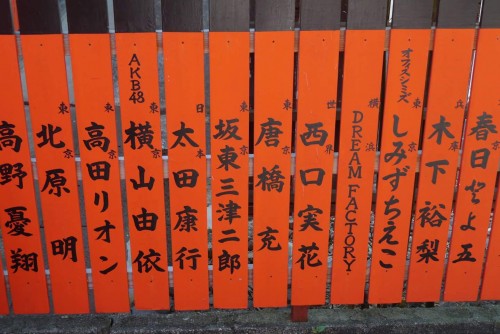 春日とよ五
兵庫
木下裕梨
オフィスシミズ
東京
しみずちえこ
横浜
DREAM FACTORY
世界
西口実花
東京
唐橋充
東京
坂東三津二郎
日本
太田康行
AKB48
東京
横山由依
東京
高田リオン
東京
北原明
高野憂翔